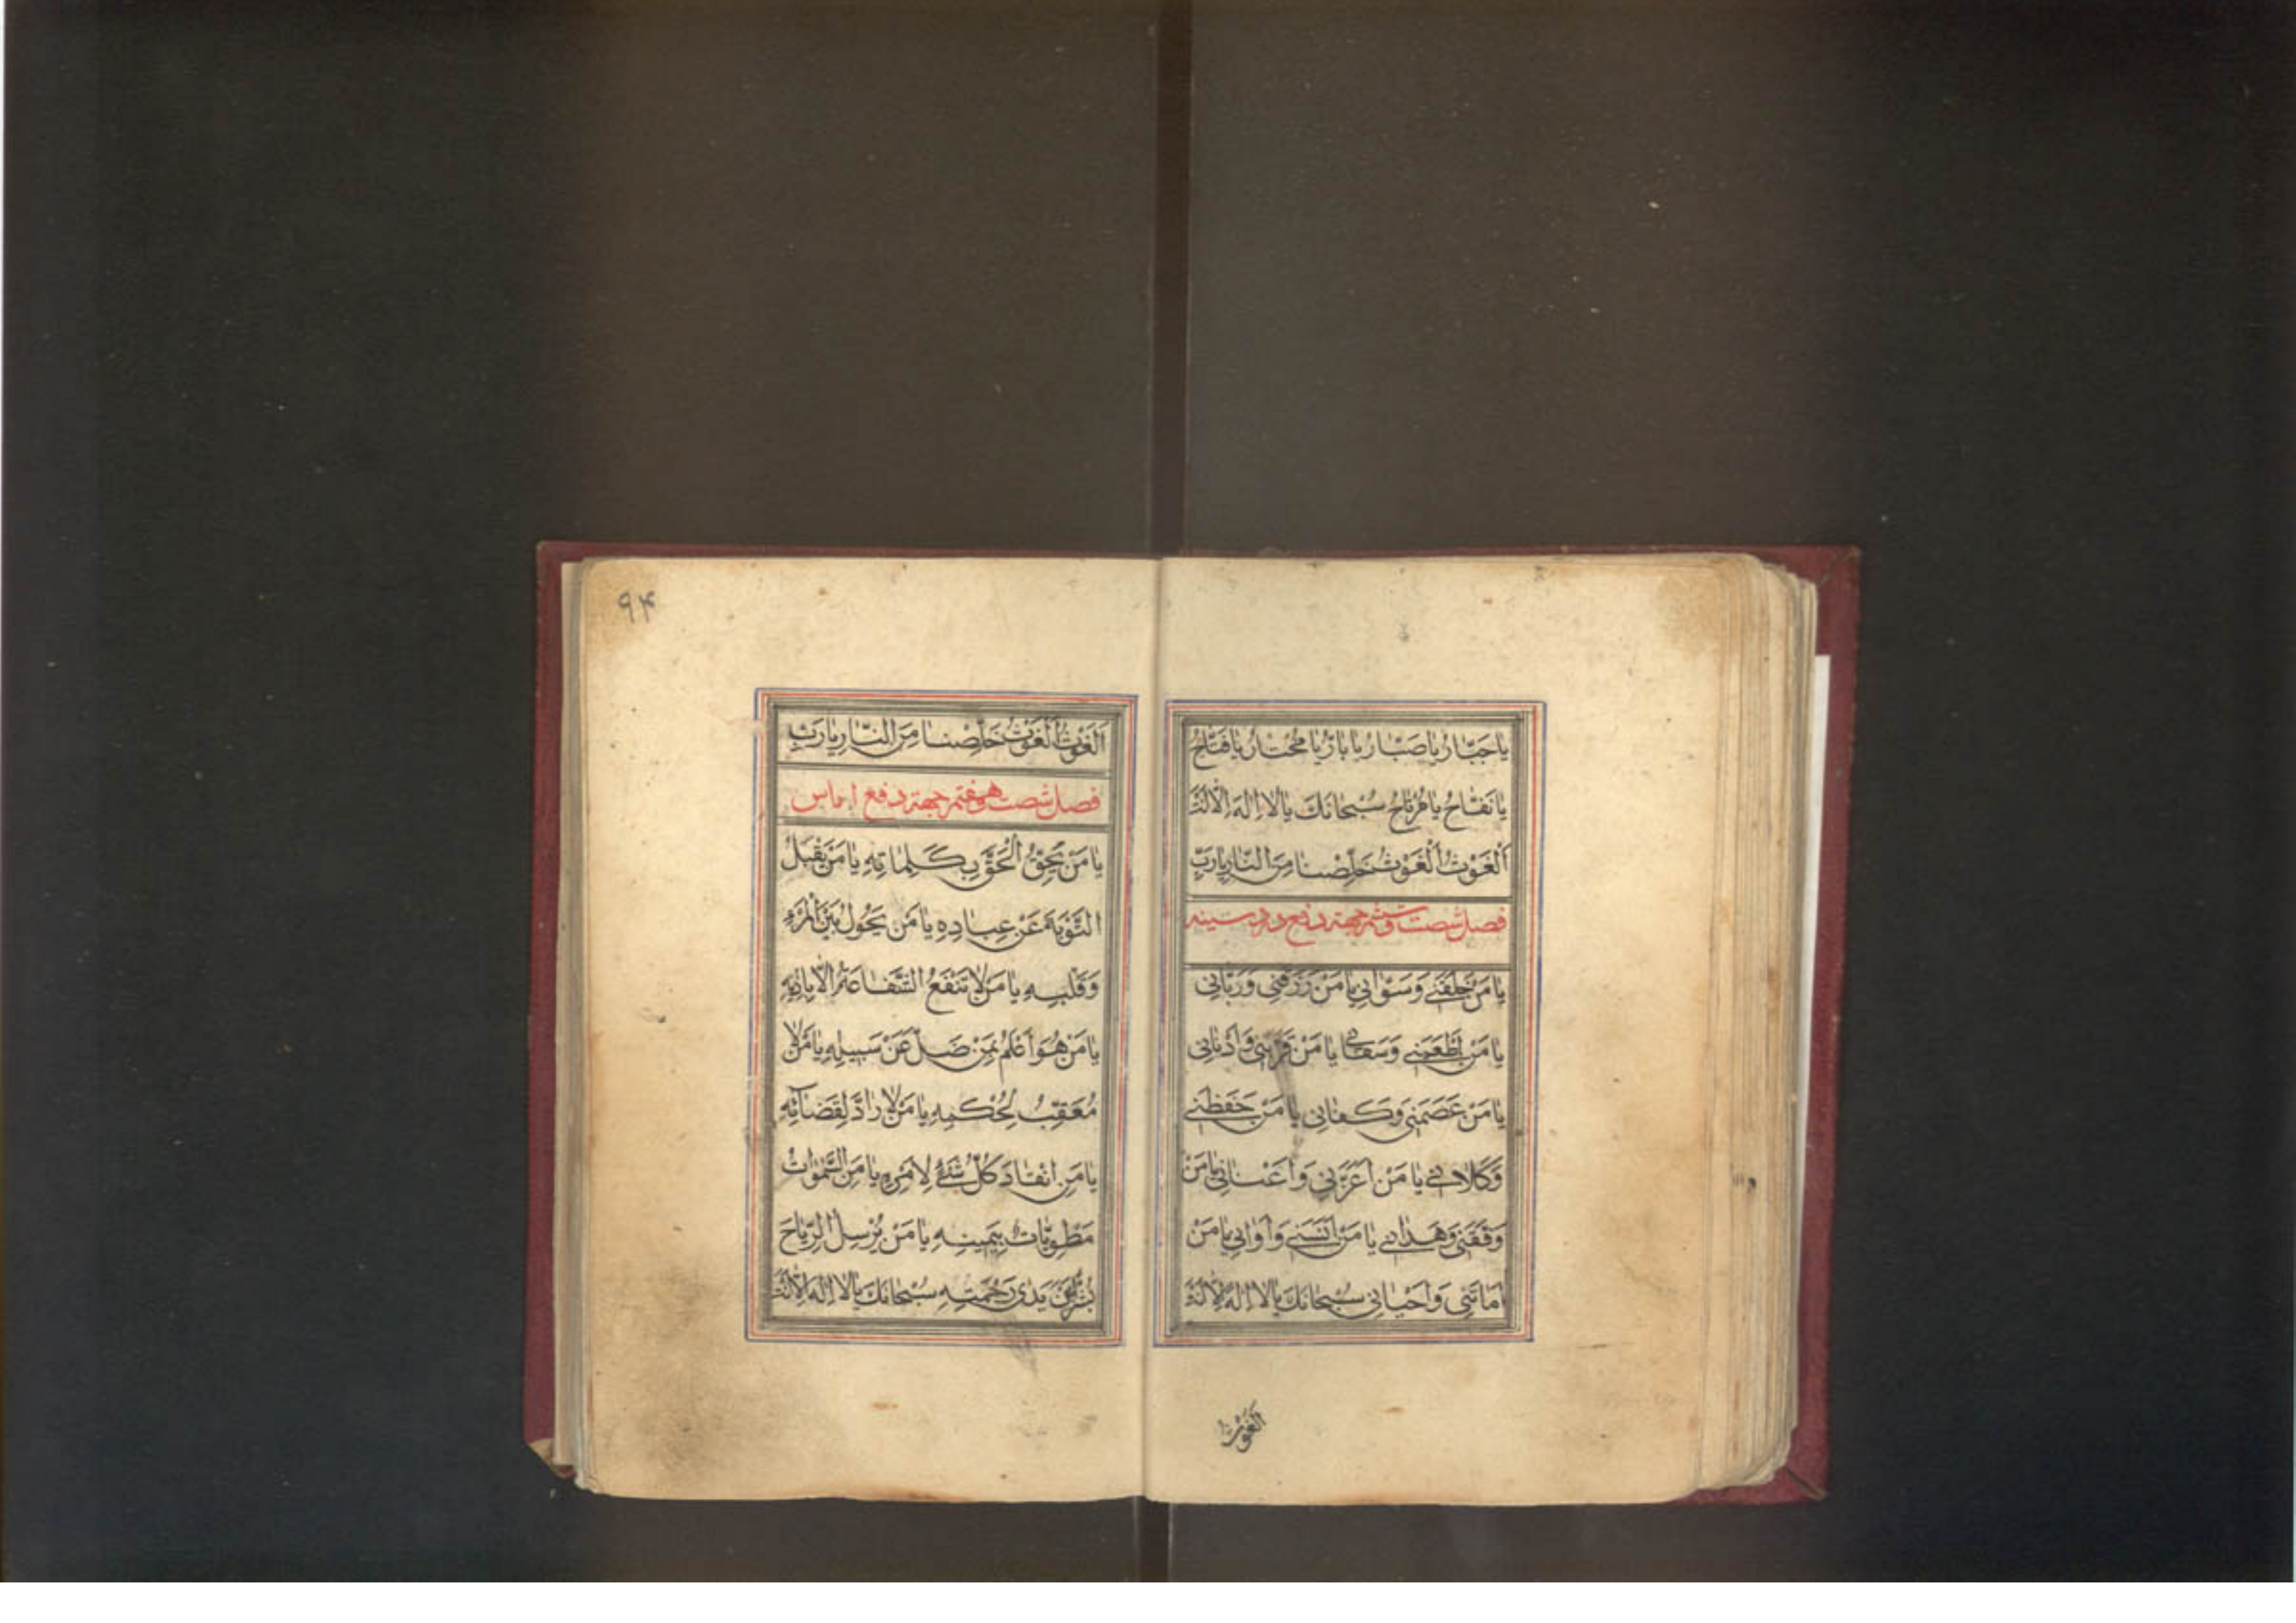 يا جَبّارُ يا صَبّارُ يا بارُّ يا مُختارُ يا فَتّاحُ
يا نَفّاحُ يا مُرْتاحُ سُبْحانَكَ يا لا اِلهَ اِلّا اَنْتَ
اَلْغَوْثُ اَلْغَوْثُ خَلِّصْنا مِنَ النّارِ يا رَبِّ
فصل شصت و ششم جهة دفع درد سينه
يا مَنْ خَلَقَنى وَ سَوّانى يا مَنْ رَزَقَنى وَ رَبّانى
يا مَنْ اَطْعَمَنى وَ سَقانى يا مَنْ قَرَّبَنى وَ اَدْنانى
يا مَنْ عَصَمَنى وَ كَفانى يا مَنْ حَفَظَنى
وَ كَلانى يا مَنْ اَعَزَّنى وَ اَغْنانى يا مَنْ
وَفَّقَنى وَ هَدانى يا مَنْ انَسَنى وَ آوانى يا مَنْ
اَماتَنى وَ اَحْيانى سُبْحانَكَ يا لا اِلهَ اِلّا اَنْتَ
اَلْغَوْثُ
٩۴
اَلْغَوْثُ اَلْغَوْثُ خَلِّصْنا مِنَ النّارِ يا رَبِّ
فصل شصت و هفتم جهة دفع اماس
يا مَنْ يُحِقُّ الْحَقَّ بِكَلِماتِهِ يا مَنْ يَقْبَلُ
التَّوْبَةَ عَنْ عِبادِهِ يا مَنْ يَحُولُ بَيْنَ الْمَرْءِ
وَ قَلْبِهِ يا مَنْ لا تَنْفَعُ الشَّفاعَةُ اِلّا بِاِذْنِهِ
يا مَنْ هُوَ اَعْلَمُ بِمَنْ ضَلَّ عَنْ سَبيلِهِ يا مَنْ لا
مُعَقِّبَ لِحُكْمِهِ يا مَنْ لا رادَّ لِقَضآئِهِ
يا مَنِ انْقادَ كُلُّ شَىْءٍ لِاَمْرِهِ يا مَنِ السَّمواتُ
مَطْوِيّاتٌ بِيَمينِهِ يا مَنْ يُرْسِلُ الرِّياحَ
بُشْراً بَيْنَ يَدَىْ رَحْمَتِهِ سُبْحانَكَ يا لا اِلهَ اِلّا اَنْتَ